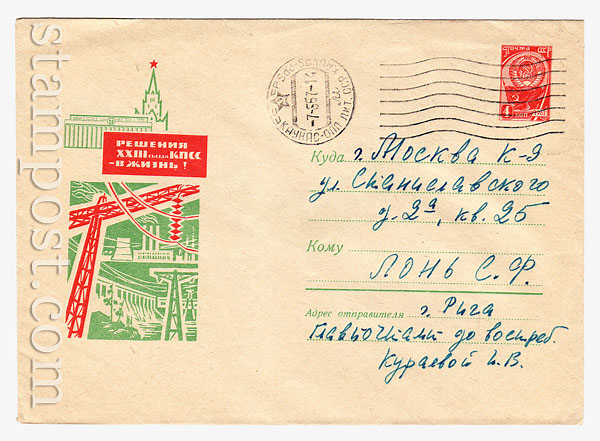 stampost.com
ПОЧТА СССР
4 КОП
РЕШЕНИЯ
XXIII съезда КПСС
-В ЖИЗНЬ!
Куда г. Москва К-9
ул. Станиславского
д. 2а, кв. 25
Кому
ЛОНЬ С. Ф.
Адрес отправителя г. Рига
Главпочтамт до востреб.
Кураевой